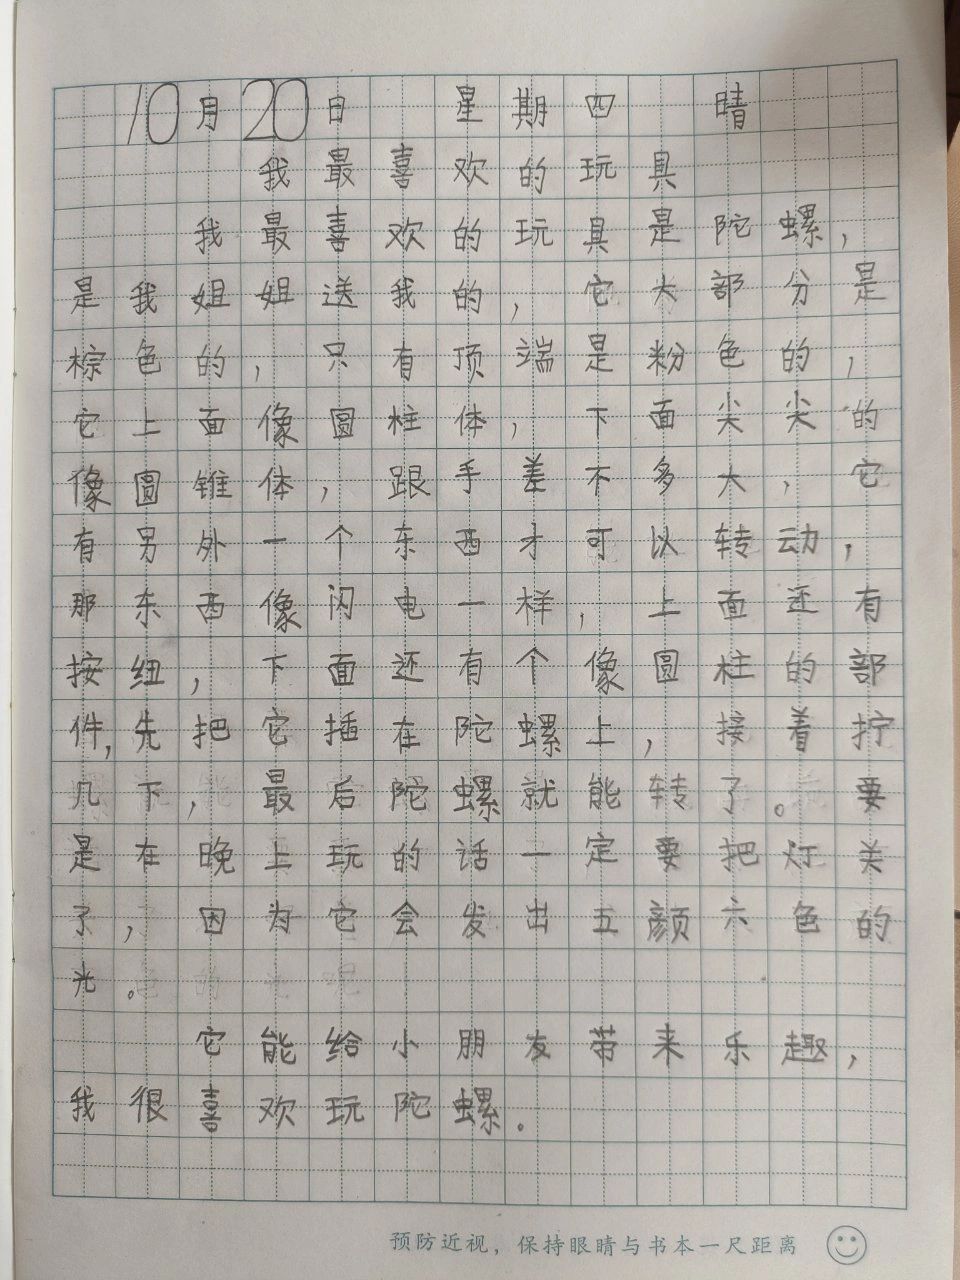 10月20日 星期四 晴
我最喜欢的玩具
我最喜欢的玩具是陀螺,
是我姐姐送我的,它大部分是
棕色的,只有顶端是粉色的,
它上面像圆柱体,下面尖尖的
像圆锥体,跟手差不多大,它
有另外一个东西才可以转动,
那东西像闪电一样,上面还有
按纽,下面还有个像圆柱的部
件,先把它插在陀螺上,接着拧
几下,最后陀螺就能转了。要
是在晚上玩的话一定要把灯关
了,因为它会发出五颜六色的
光。
它能给小朋友带来乐趣,
我很喜欢玩陀螺。
预防近视,保持眼睛与书本一尺距离